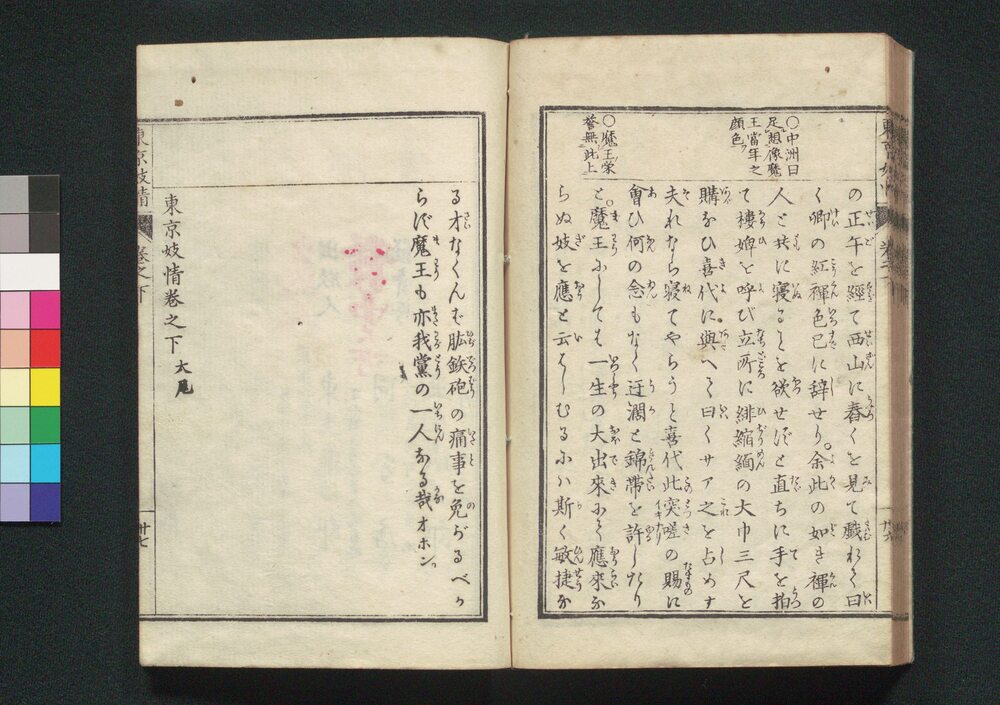 ○中洲曰
足㆑想㆓像魔
王當年之
顔色㆒
○魔王栄
誉無㆓此上㆒
の正午を經て西山に舂くを見て戯れて曰
く卿の紅褌色已に辞せり。余此の如き褌の
人と共に寝ることを欲せずと直ちに手を拍
て棲婢を呼び立所に緋縮緬の大巾三尺を
購なひ喜代に與へて曰くサア之を占めす
夫れなら寝てやらうと喜代此突嗟の賜に
會ひ何の念もなく迂濶と錦帯を許したり
と。魔王にしても一生の大出來にて應來な
らぬ妓を應と云はしむるには斯く敏捷な
東京妓情
卷之下
廿六
る才なくんば肱鉄砲の痛事を免がるべか
らず魔王も亦我黨の一人なる哉オホン
東京妓情卷之下大尾
東京妓情
卷之下
廿七